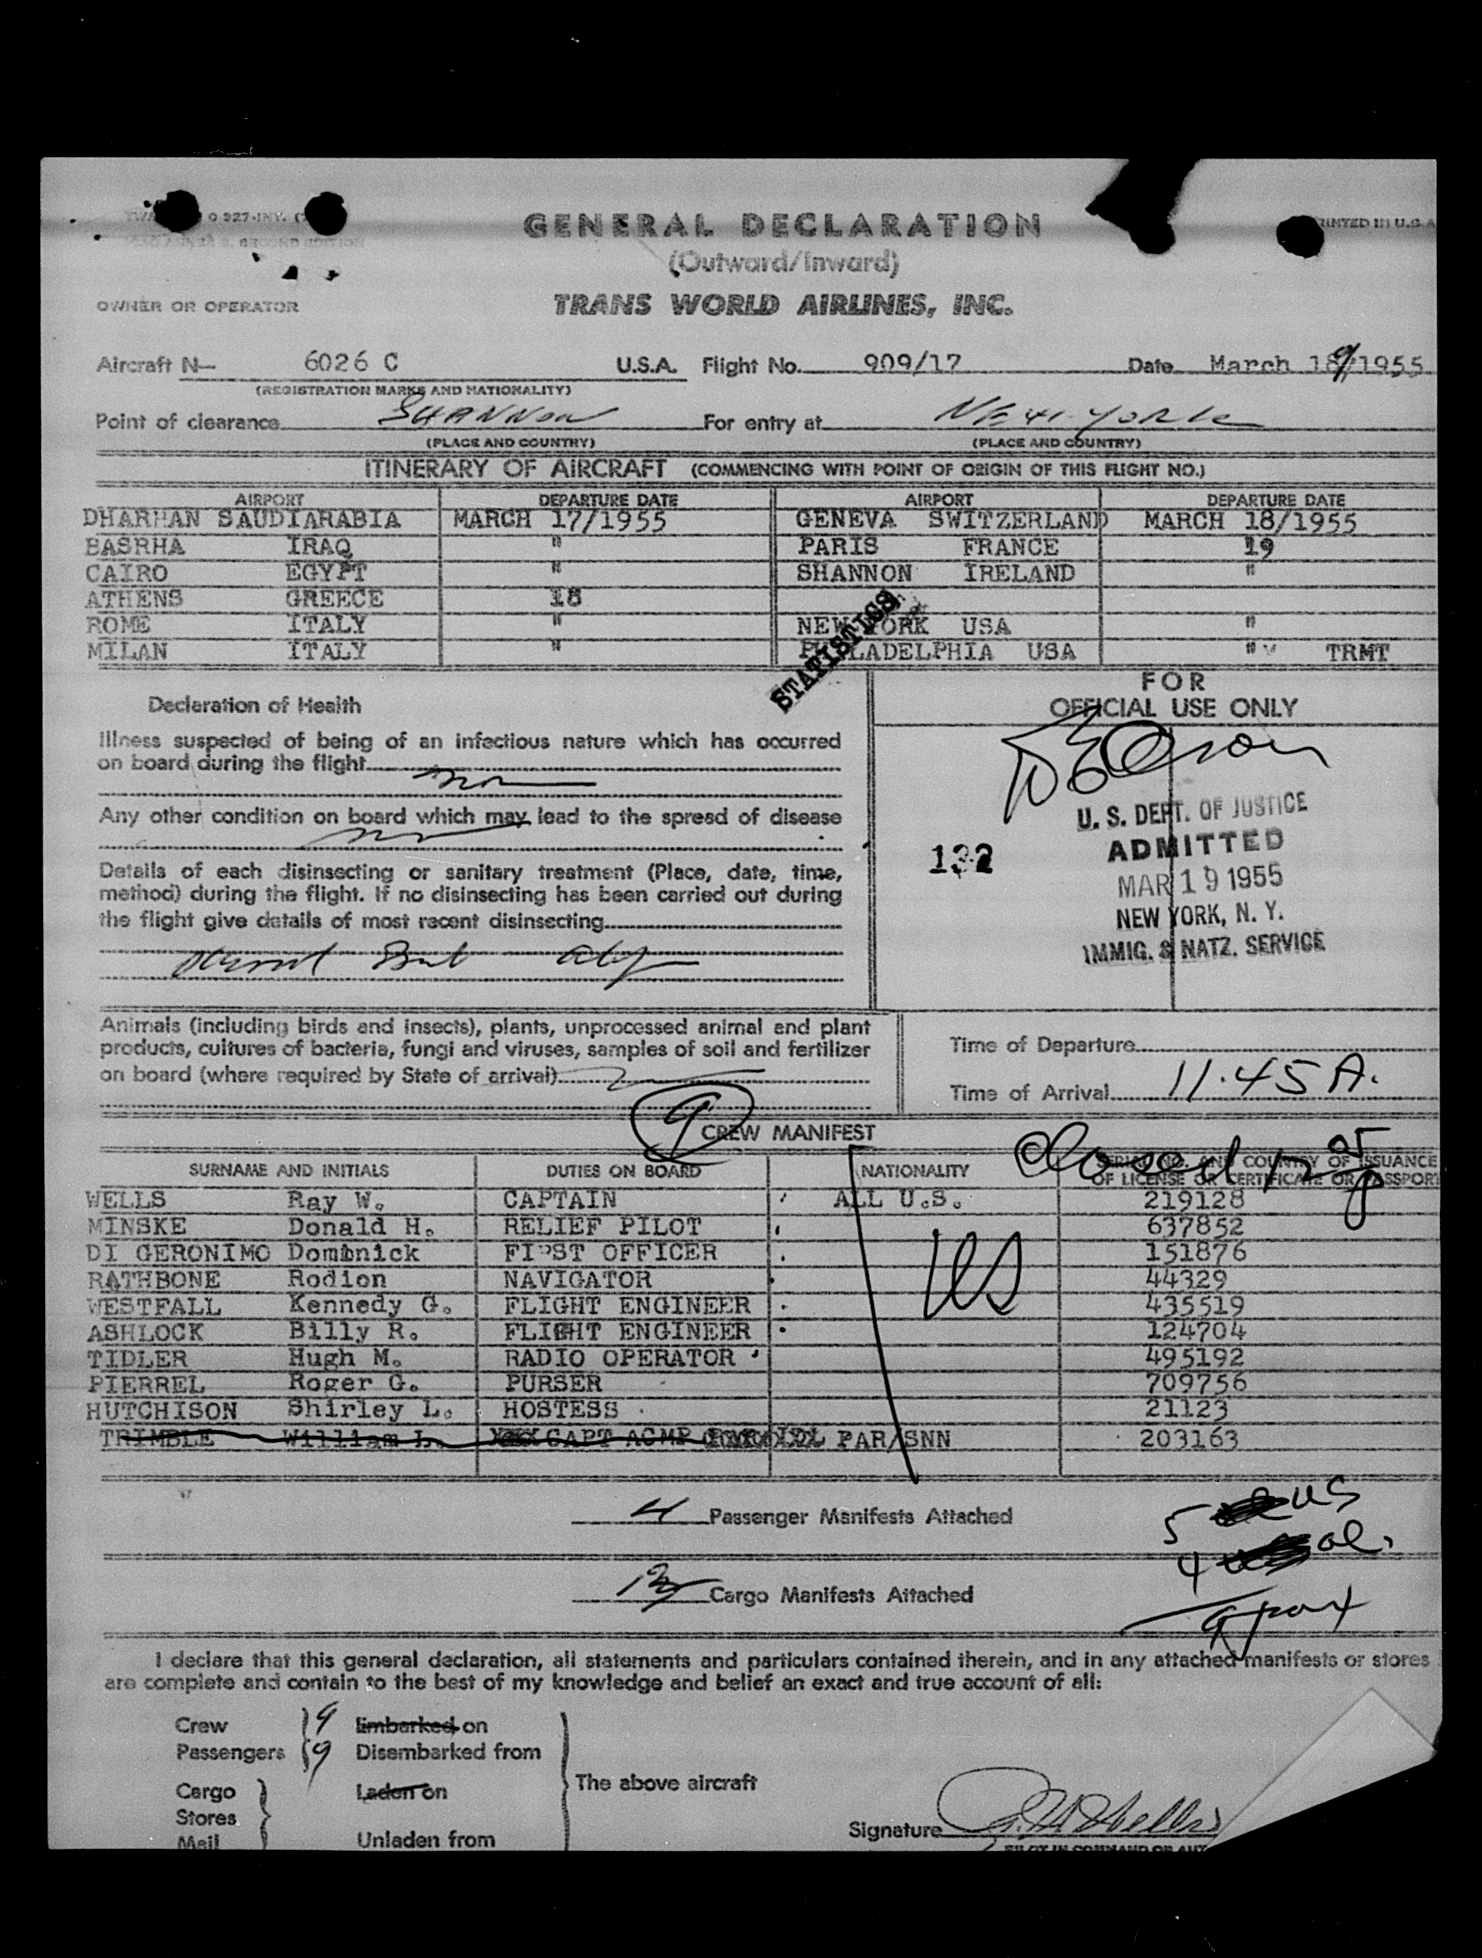 GENERAL DECLARATION
(Outward/Inward)
PRINTED IN U.S.A
OWNER OR OPERATOR
TRANS WORLD AIRLINES, INC.
Aircraft N— 6026 C U.S.A. Flight No. 909/17 Date March 189/1955
(REGISTRATION MARKS AND NATIONALITY)
Point of clearance SHANNON For entry at NEW YORK
(PLACE AND COUNTRY) (PLACE AND COUNTRY)
ITINERARY OF AIRCRAFT (COMMENCING WITH POINT OF ORIGIN OF THIS FLIGHT NO.)
AIRPORT DEPARTURE DATE AIRPORT DEPARTURE DATE
DHARHAN SAUDIARABIA MARCH 17/1955 GENEVA SWITZERLAND MARCH 18/1955
BASRHA IRAQ " PARIS FRANCE 19
CAIRO EGYPT " SHANNON IRELAND "
ATHENS GREECE 18
ROME ITALY " NEW YORK USA "
MILAN ITALY " PHILADELPHIA USA " TRMT
STATISTICS
FOR
OFFICIAL USE ONLY
Declaration of Health
Illness suspected of being of an infectious nature which has occurred
on board during the flight
Any other condition on board which may lead to the spread of disease
Details of each disinsecting or sanitary treatment (Place, date, time,
method) during the flight. If no disinsecting has been carried out during
the flight give details of most recent disinsecting
132
U. S. DEPT. OF JUSTICE
ADMITTED
MAR 19 1955
NEW YORK, N. Y.
IMMIG. & NATZ. SERVICE
Animals (including birds and insects), plants, unprocessed animal and plant
products, cultures of bacteria, fungi and viruses, samples of soil and fertilizer
on board (where required by State of arrival)
Time of Departure
Time of Arrival 11.45 A.
9
CREW MANIFEST
Closed
SURNAME AND INITIALS DUTIES ON BOARD NATIONALITY SERIAL NO. AND COUNTRY OF ISSUANCE
OF LICENSE OR CERTIFICATE OR PASSPORT
WELLS Ray W. CAPTAIN ALL U.S. 219128
MINSKE Donald H. RELIEF PILOT 637852
DI GERONIMO Dominick FIRST OFFICER 151876
RATHBONE Rodion NAVIGATOR 44329
WESTFALL Kennedy G. FLIGHT ENGINEER 435519
ASHLOCK Billy R. FLIGHT ENGINEER 124704
TIDLER Hugh M. RADIO OPERATOR 495192
PIERREL Roger G. PURSER 709756
HUTCHISON Shirley L. HOSTESS 21123
TRIMBLE William L. CAPT ACMP IDL PAR/SNN 203163
US
4 Passenger Manifests Attached
5 US
4 al.
13 Cargo Manifests Attached
9 pax
I declare that this general declaration, all statements and particulars contained therein, and in any attached manifests or stores
are complete and contain to the best of my knowledge and belief an exact and true account of all:
Crew 9 Embarked on
Passengers 9 Disembarked from
Cargo Laden on
The above aircraft
Stores
Mail Unladen from
Signature